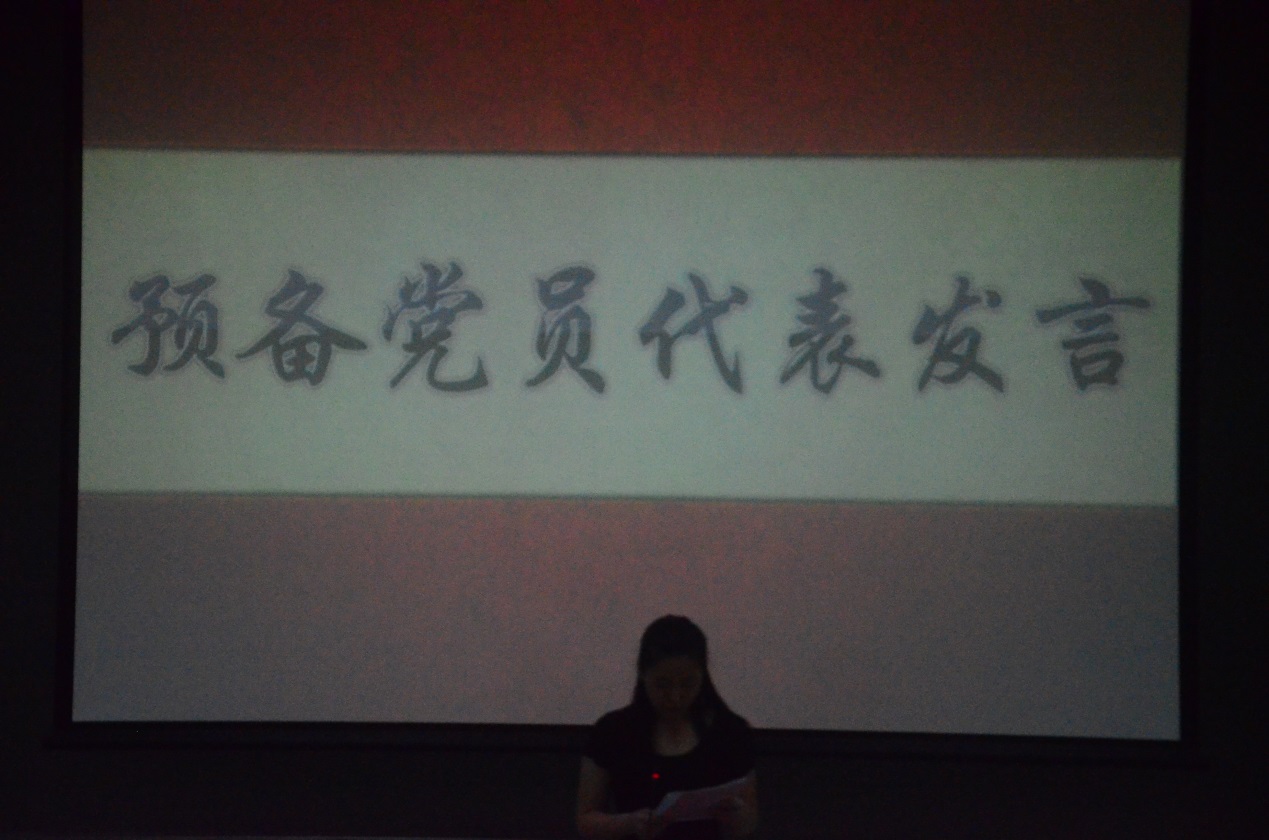 预备党员代表发言